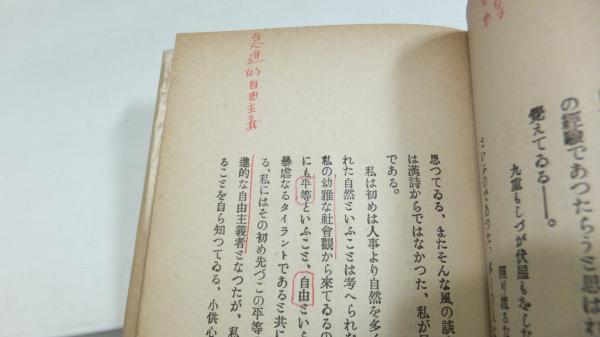 の経験であつたらうと思はれ
覚えてゐる――。
九重もしづが伏屋もをしな
照り渡るな
急進的自由主義
思つてゐる、またそんな風の談
は漢詩からではなかつた、私が
である。
私は初めは人事より自然を多く
れた自然といふことは考へられな
私の幼雅な社會觀から來てゐるの
にも平等といふこと、自由といら
暴虐なるタイラントであると共に
る、私にはその初め先づこの平等
進的な自由主義者となつたが、私
ることを自ら知つてゐる、小供心